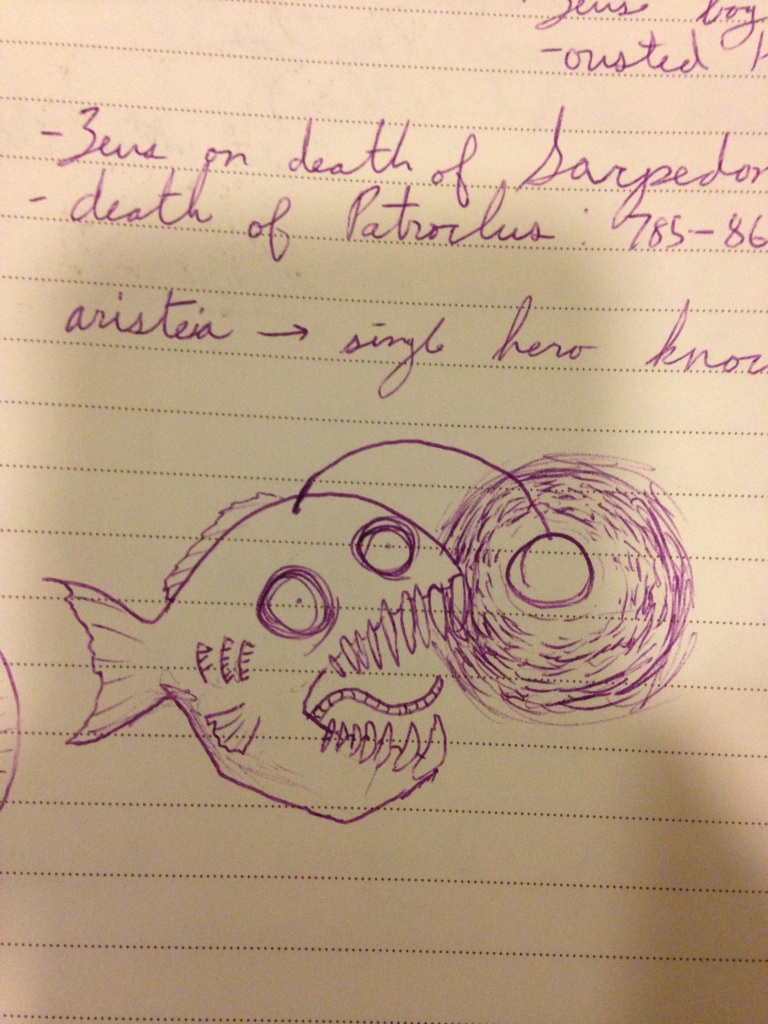 Zeus boy
-ousted
-Zeus on death of Sarpedon
- death of Patroclus : 785-86
aristeia → single hero knoc